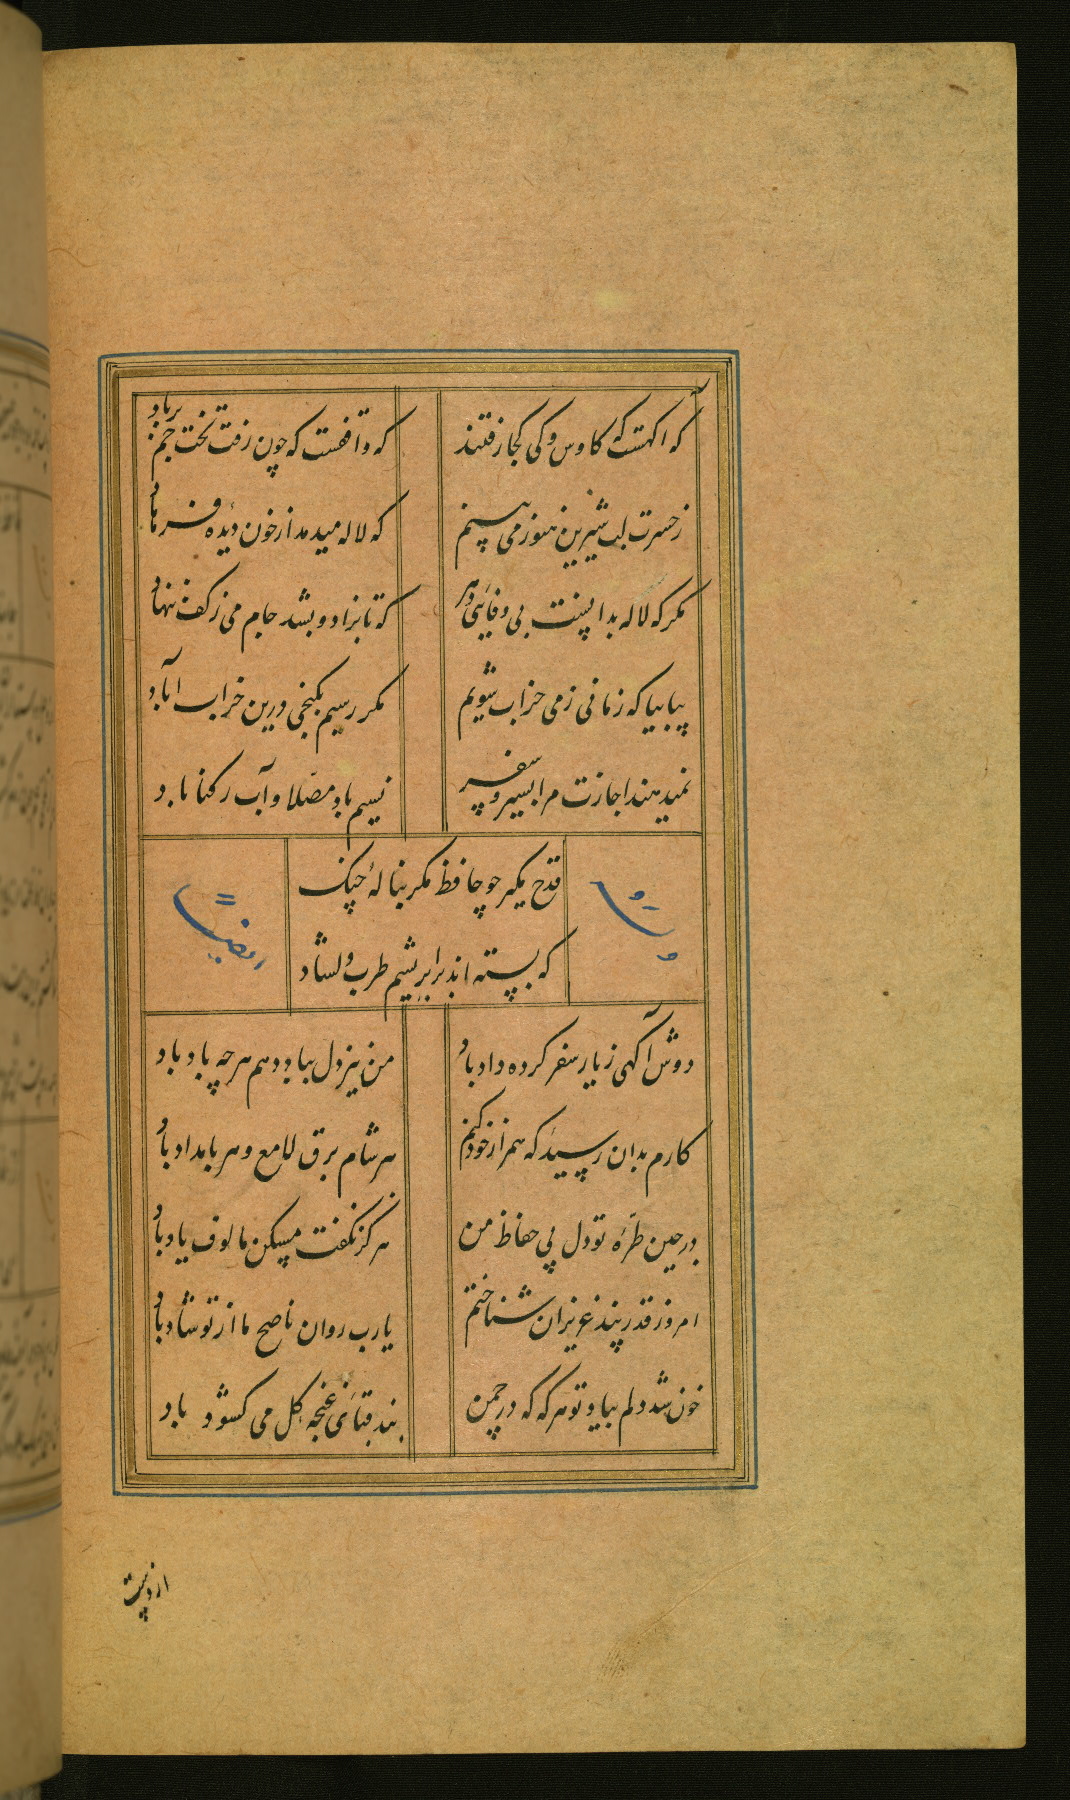 که اکهست که کاوس و کی کجا رفتند که واقفست که چون رفت تخت جم برباد
ز حسرت لب شیرین هنوز می بینم که لاله میدمد از خون دیده فرهاد
مکر که لاله بدانست بی وفائی دهر که تا بزاد و بشد جام می ز کف ننهاد
بیا بیا که زمانی ز می خراب شویم مکر رسیم بکنجی درین خراب اباد
نمیدهند اجازت مرا بسیر و سفر نسیم باد مصلا و آب رکناباد
قدح مکیر چو حافظ مکر بنالهٔ چنک
که بسته اند بر ابریشم طرب دلشاد
وله ایضاً
دوش آکهی ز یار سفر کرده داد باد من نیز دل بباد دهم هرچه باد باد
کارم بدان رسید که همراز خود کنم هر شام برق لامع و هر بامداد باد
در چین طرهٔ تو دل بی حفاظ من هرکز نکفت مسکن مالوف یاد باد
امروز قدر پند عزیزان شناختم یارب روان ناصح ما از تو شاد باد
خون شد دلم بیاد تو هرکه که در چمن بند قبای غنچه کل می کشود باد
از دست